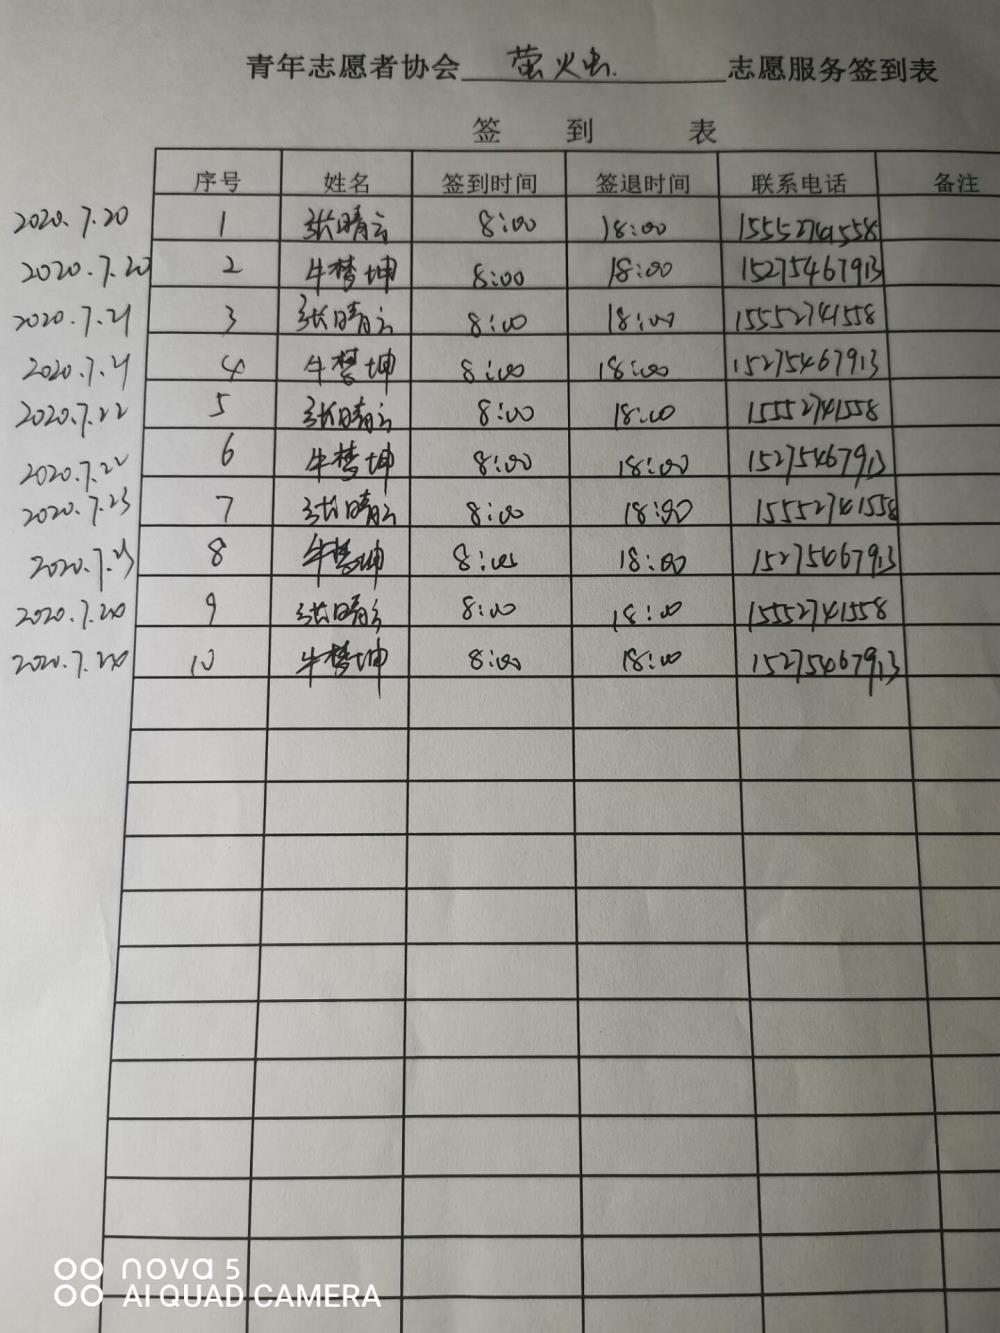 青年志愿者协会 萤火虫. 志愿服务签到表
签 到 表
序号 姓名 签到时间 签退时间 联系电话 备注
2020.7.20 1 张晴云 8:00 18:00 15552741558
2020.7.20 2 牛梦坤 8:00 18:00 15275467913
2020.7.21 3 张晴云 8:00 18:00 15552741558
2020.7.21 4 牛梦坤 8:00 18:00 15275467913
2020.7.22 5 张晴云 8:00 18:00 15552741558
2020.7.22 6 牛梦坤 8:00 18:00 15275467913
2020.7.23 7 张晴云 8:00 18:00 15552741558
2020.7.23 8 牛梦坤 8:00 18:00 15275467913
9 张晴云 8:00 18:00 15552741558
10 牛梦坤 8:00 18:00 15275467913
nova 5
AI QUAD CAMERA